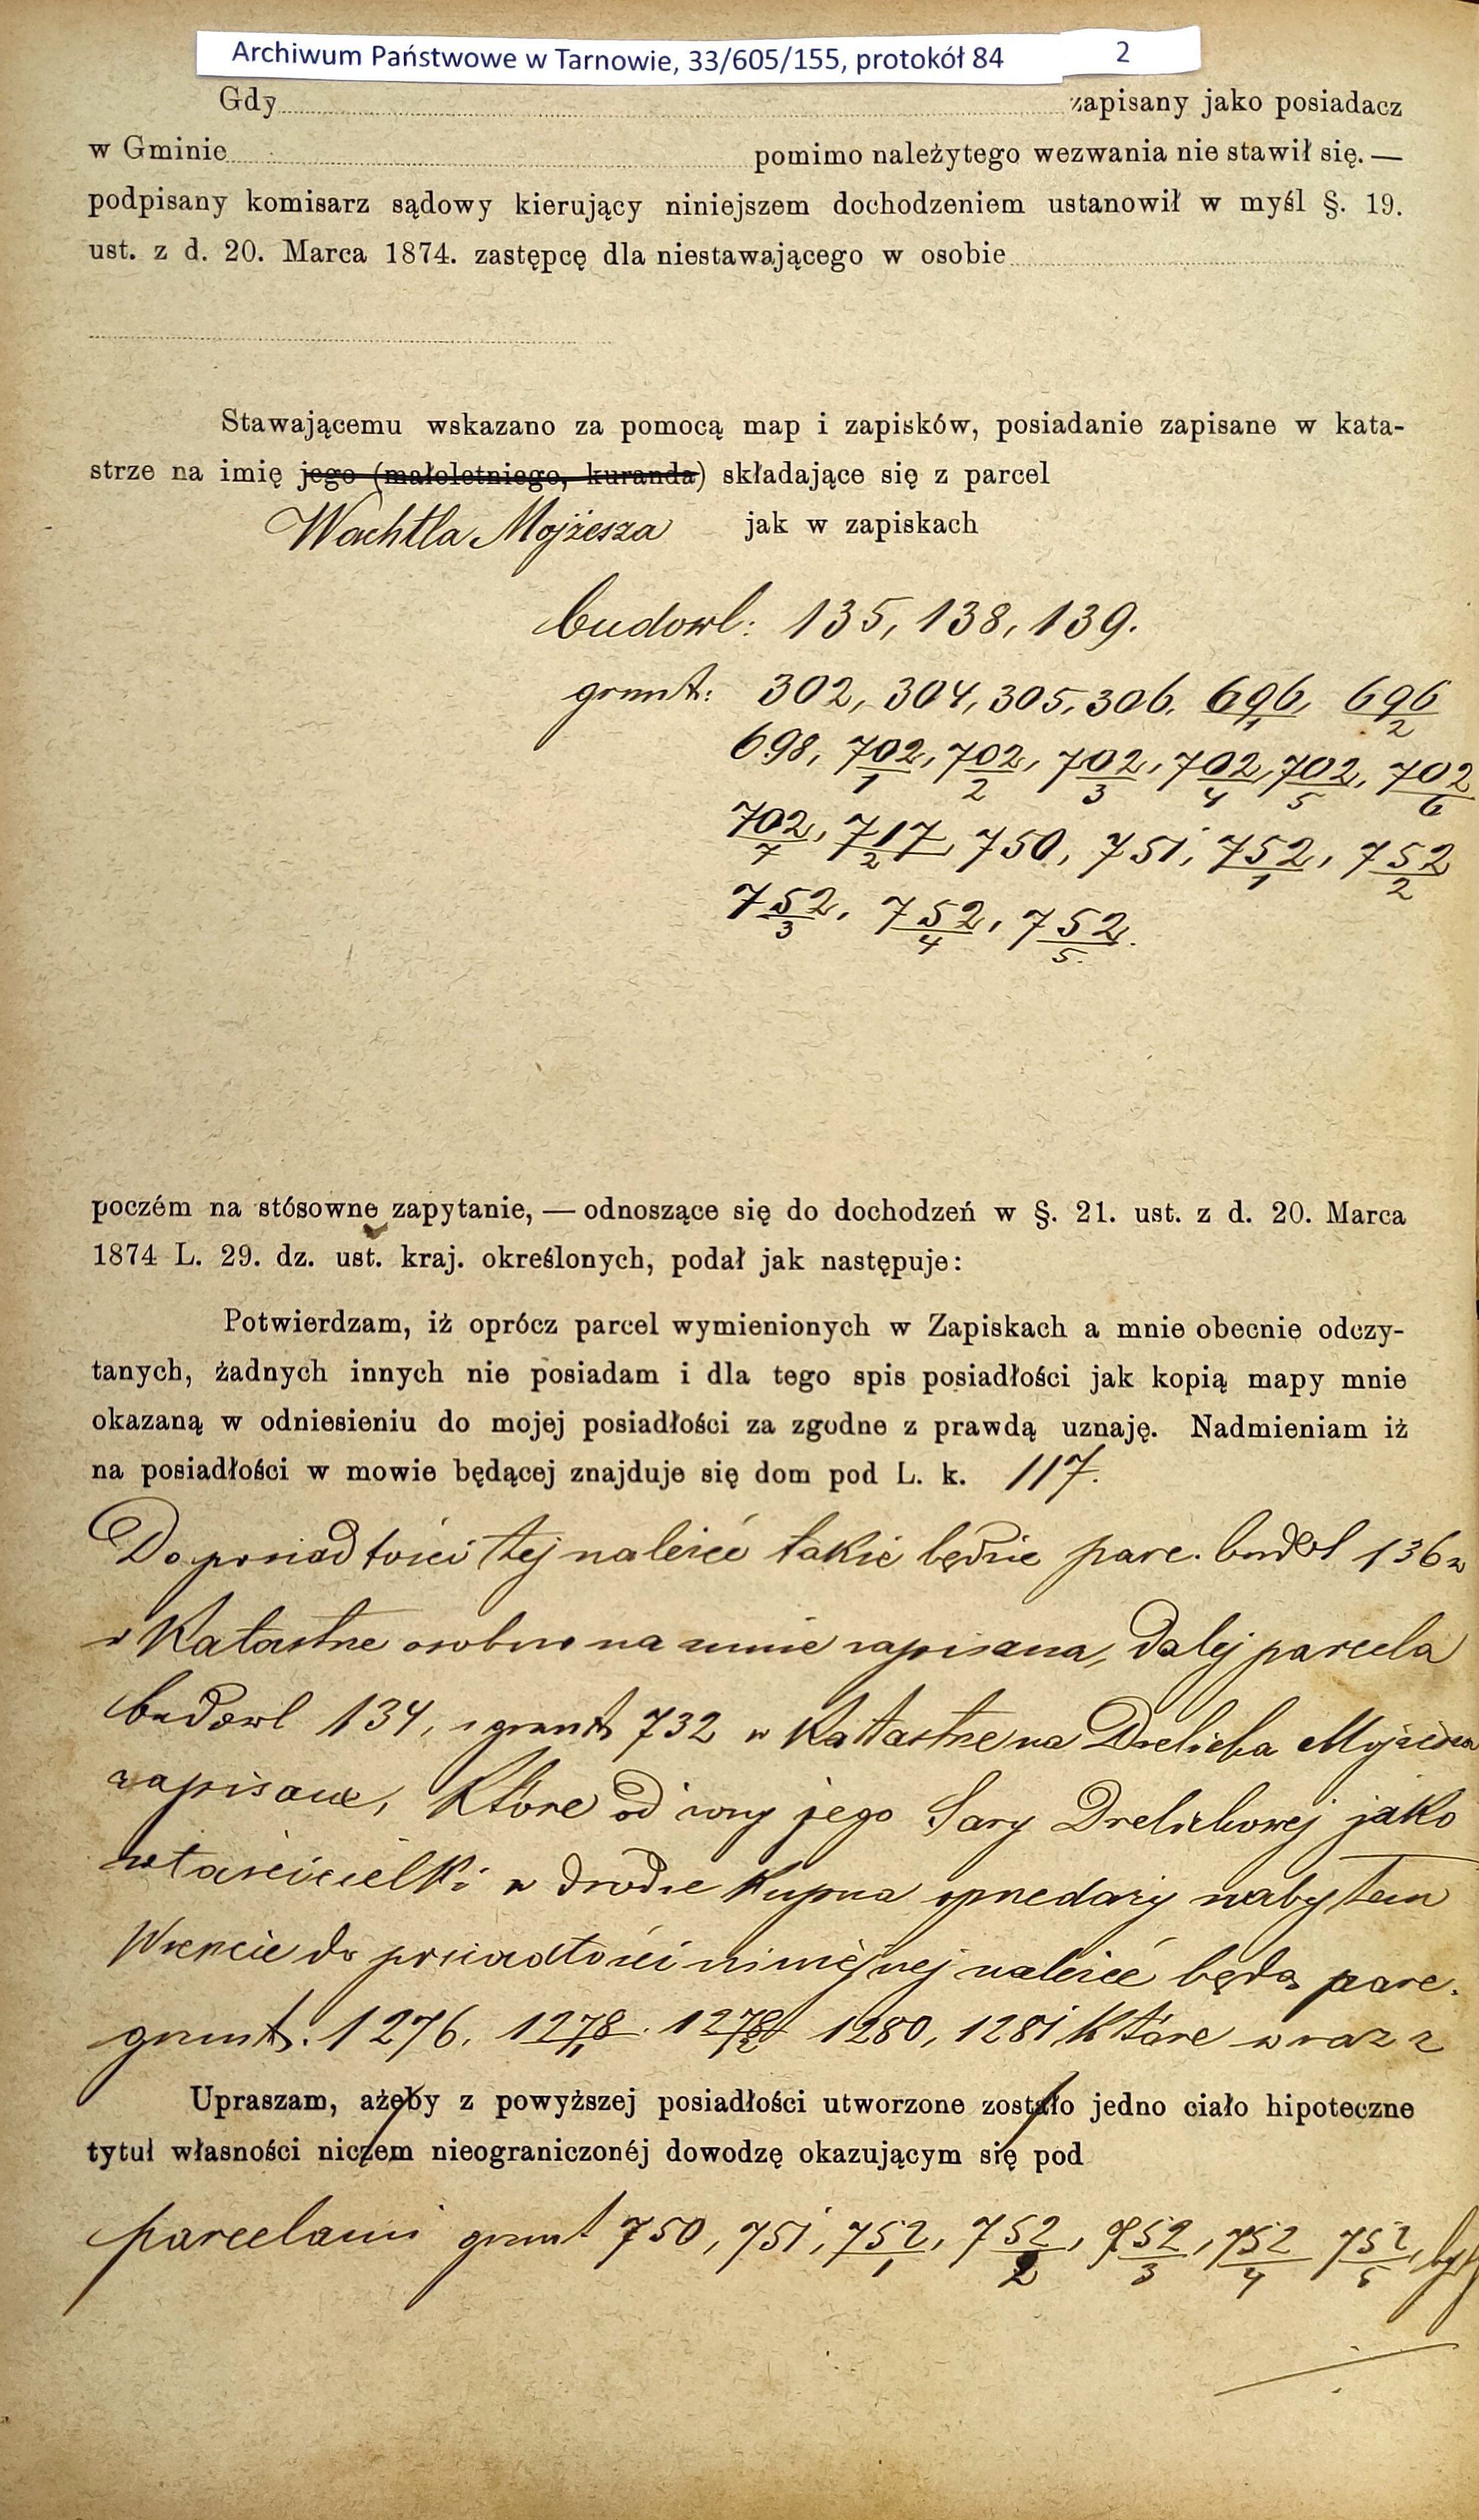 Archiwum Państwowe w Tarnowie, 33/605/155, protokół 84 2
Gdy zapisany jako posiadacz
w Gminie pomimo należytego wezwania nie stawił się. —
podpisany komisarz sądowy kierujący niniejszem dochodzeniem ustanowił w myśl §. 19.
ust. z d. 20. Marca 1874. zastępcę dla niestawającego w osobie
Stawającemu wskazano za pomocą map i zapisków, posiadanie zapisane w kata-
strze na imię jego (małoletniego, kuranda) składające się z parcel
Wachtla Mojżesza jak w zapiskach
budowl: 135, 138, 139.
grunt: 302, 304, 305, 306, 696/1, 696/2
698, 702/1, 702/2, 702/3, 702/4, 702/5, 702/6
702/7, 717/2, 750, 751, 752/1, 752/2
752/3, 752/4, 752/5.
poczém na stósowne zapytanie, — odnoszące się do dochodzeń w §. 21. ust. z d. 20. Marca
1874 L. 29. dz. ust. kraj. określonych, podał jak następuje:
Potwierdzam, iż oprócz parcel wymienionych w Zapiskach a mnie obecnie odczy-
tanych, żadnych innych nie posiadam i dla tego spis posiadłości jak kopią mapy mnie
okazaną w odniesieniu do mojej posiadłości za zgodne z prawdą uznaję. Nadmieniam iż
na posiadłości w mowie będącej znajduje się dom pod L. k. 117.
Do posiadłości tej należeć także będzie parc. budowl 136
w Katastrze osobno na mnie zapisana, dalej parcela
budowl 134, i grunt 732 w Katastrze na Drelicha Mojżesza
zapisane, które od żony jego Sary Drelichowej jako
właścicielki w drodze kupna sprzedaży nabyłem
Wreszcie do posiadłości niniejszej należeć będą parc.
grunt. 1276, 1278/1. 1278/2 1280, 1281 które wraz z
Upraszam, ażeby z powyższej posiadłości utworzone zostało jedno ciało hipoteczne
tytuł własności niczem nieograniczonéj dowodzę okazującym się pod
parcelami grunt 750, 751, 752/1, 752/2, 752/3, 752/4 752/5,